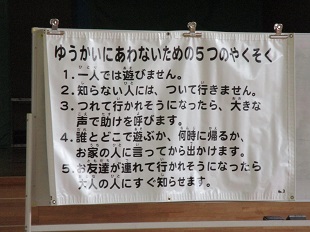 ゆうかいにあわないための5つのやくそく
1.一人では遊びません。
2.知らない人には、ついて行きません。
3.つれて行かれそうになったら、大きな
声で助けを呼びます。
4.誰とどこで遊ぶか、何時に帰るか、
お家の人に言ってから出かけます。
5.お友達が連れて行かれそうになったら
大人の人にすぐ知らせます。